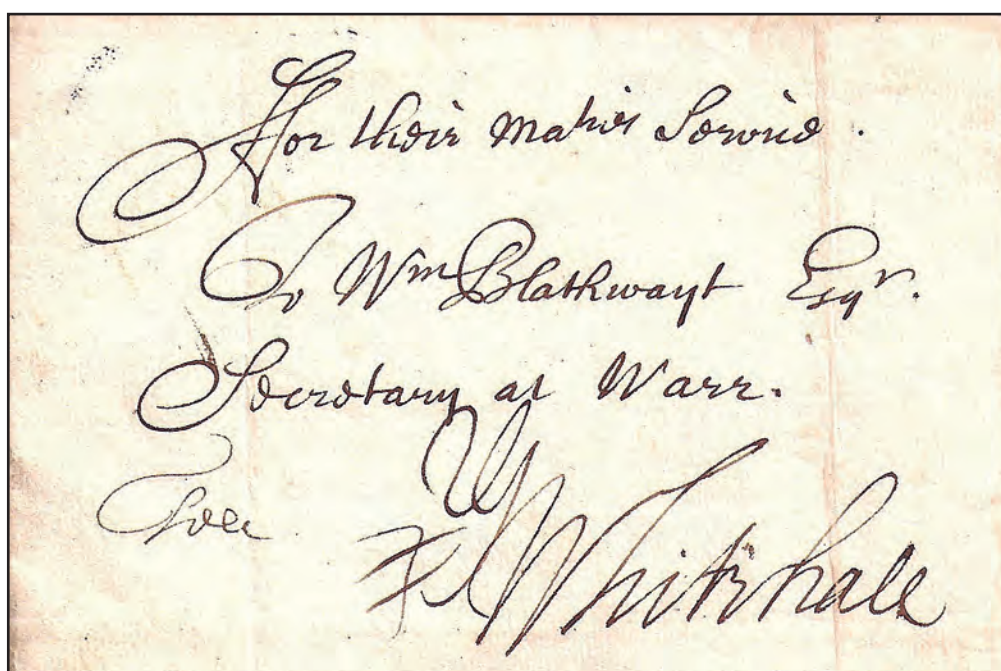 ffor their Maties Service.
To Wm Blathwayt Esqr.
Secretary at Warr.
Whitehall